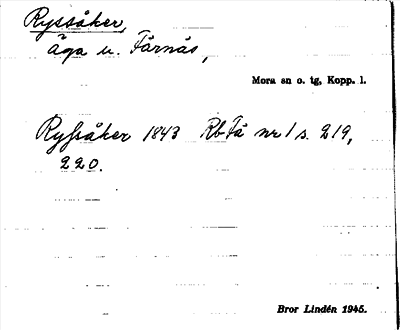 Ryssåker,
äga u. Färnäs,
Mora sn o. tg, Kopp. l.
Ryssåker 1843 Rb Fä nr 1 s. 219,
220.
Bror Lindén 1945.